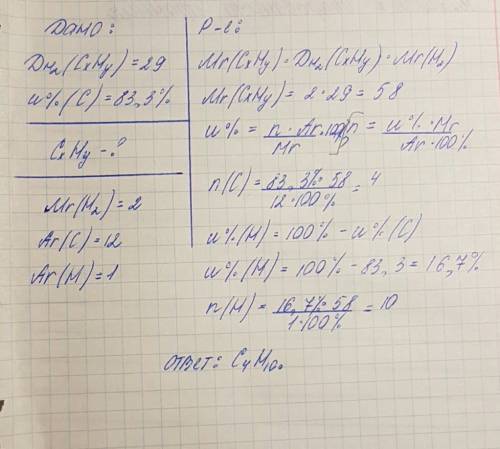 Дано:
D H₂ (CxHy) = 29
w% (C) = 83,3%
CxHy - ?
Mr(H₂) = 2
Ar(C) = 12
Ar(H) = 1
Р-е:
Mr(CxHy) = D H₂ (CxHy) · Mr(H₂)
Mr(CxHy) = 2 · 29 = 58
w% = n · Ar · 100% / Mr } n = w% · Mr / Ar · 100%
n(C) = 83,3% · 58 / 12 · 100% = 4
w% (H) = 100% - w% (C)
w% (H) = 100% - 83,3 = 16,7%
n(H) = 16,7% · 58 / 1 · 100% = 10
ответ: C₄H₁₀.